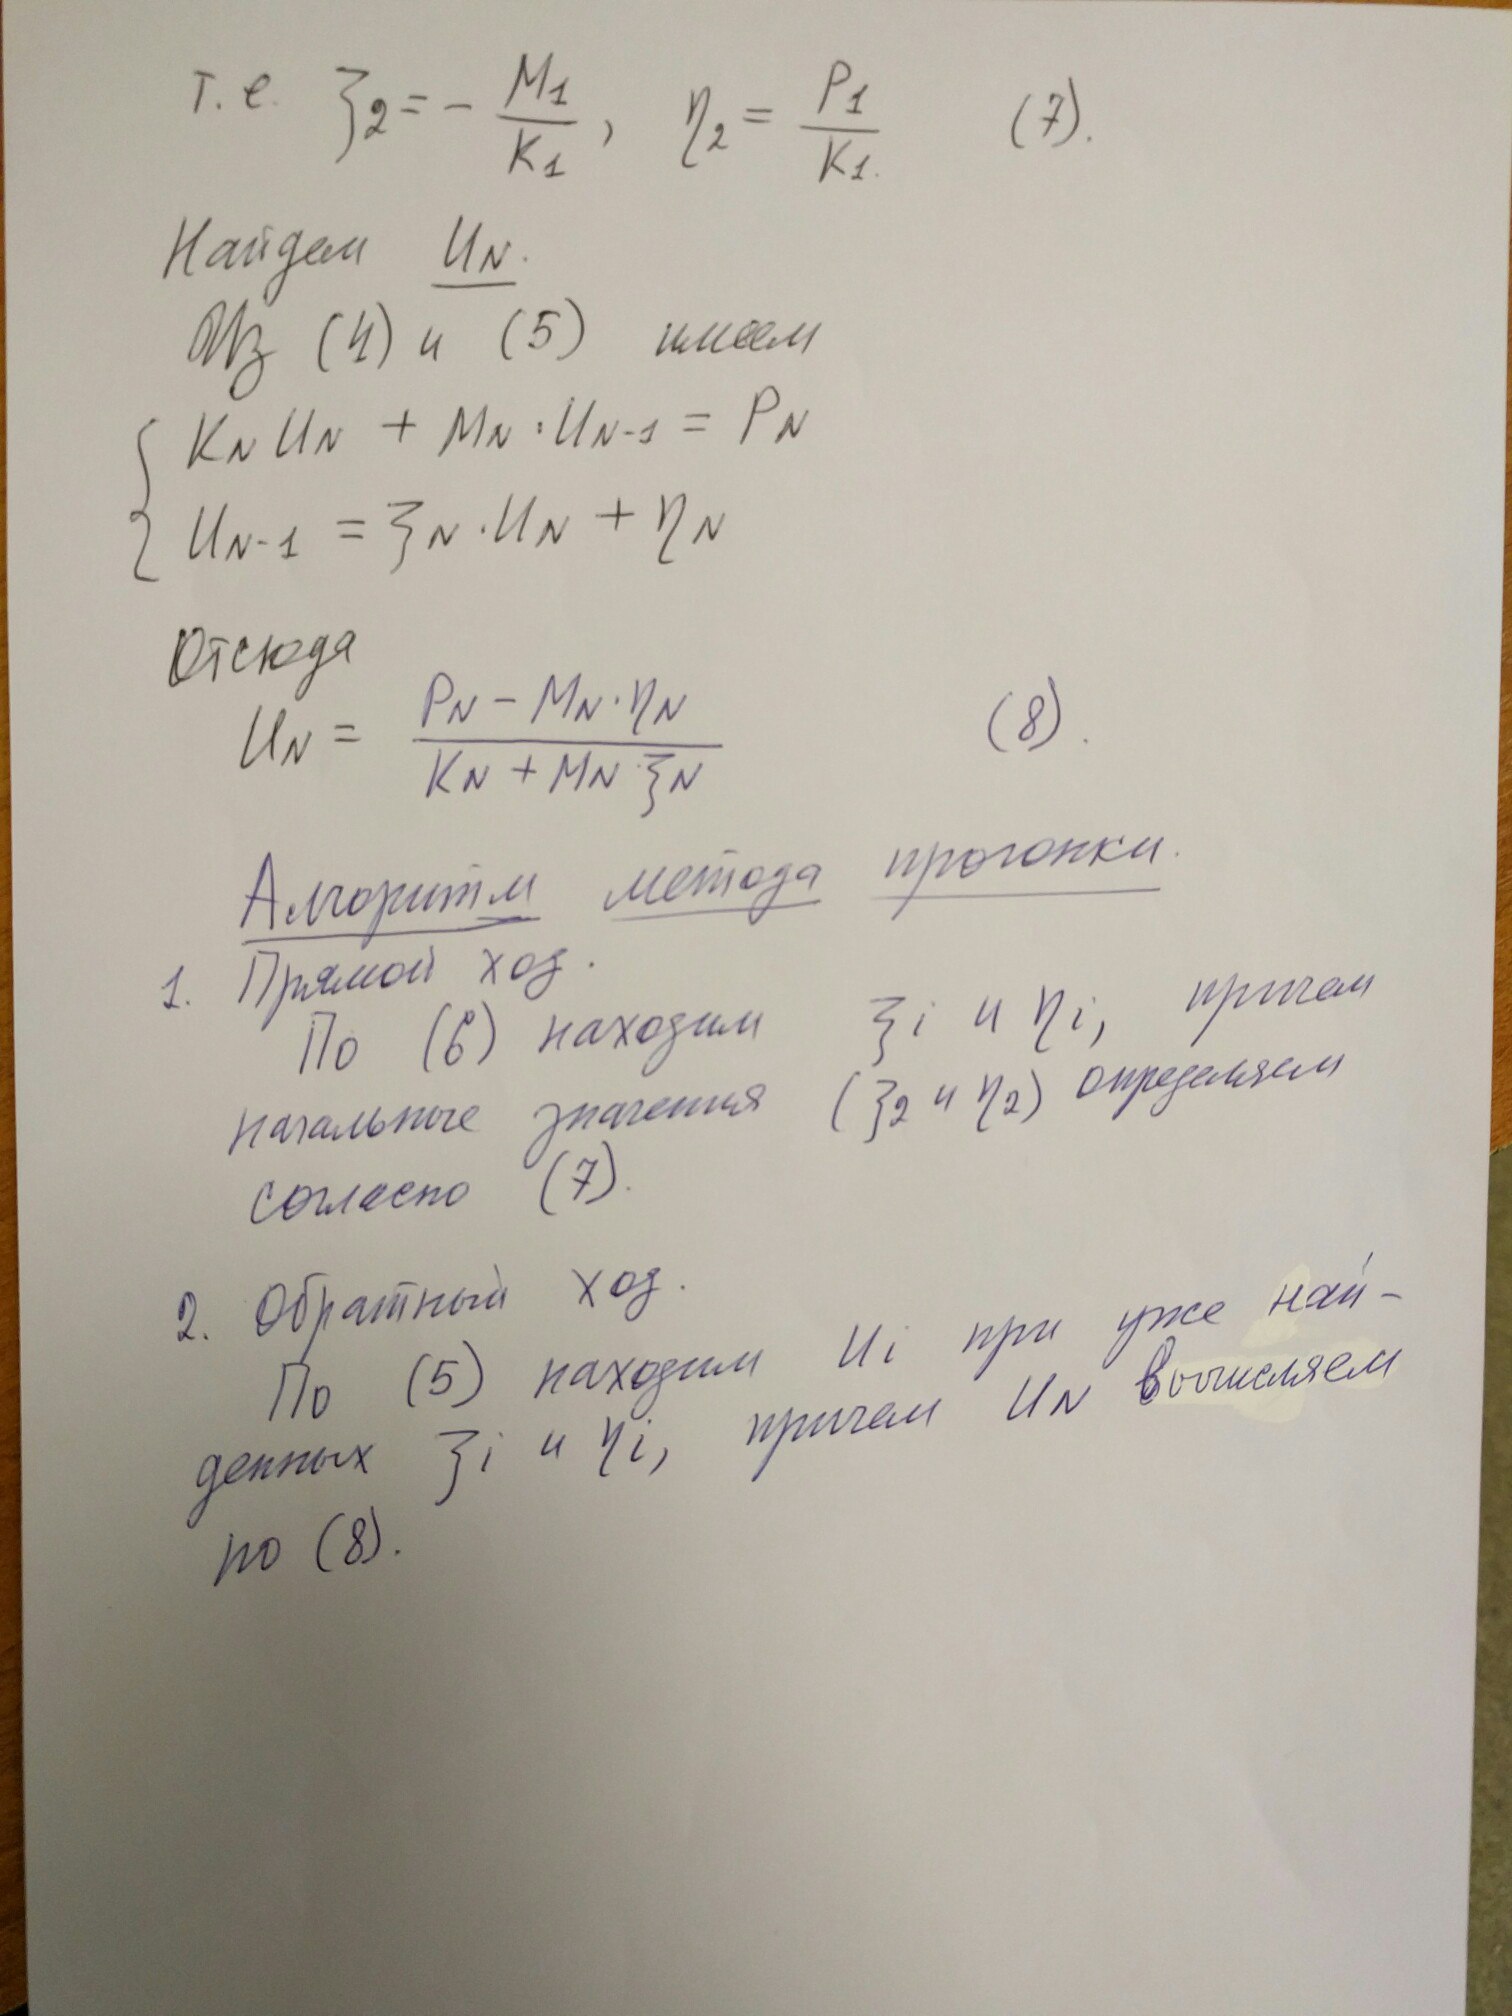 т.е. ξ₂ = - M₁/K₁, η₂ = P₁/K₁. (7).
Найдем U_N.
Из (4) и (5) имеем
{ K_N U_N + M_N · U_{N-1} = P_N
U_{N-1} = ξ_N · U_N + η_N
Отсюда
U_N = (P_N - M_N · η_N)/(K_N + M_N · ξ_N) (8).
Алгоритм метода прогонки.
1. Прямой ход.
По (6) находим ξi и ηi, причем
начальные значения (ξ₂ и η₂) определяем
согласно (7).
2. Обратный ход.
По (5) находим Ui при уже най-
денных ξi и ηi, причем U_N вычисляем
по (8).